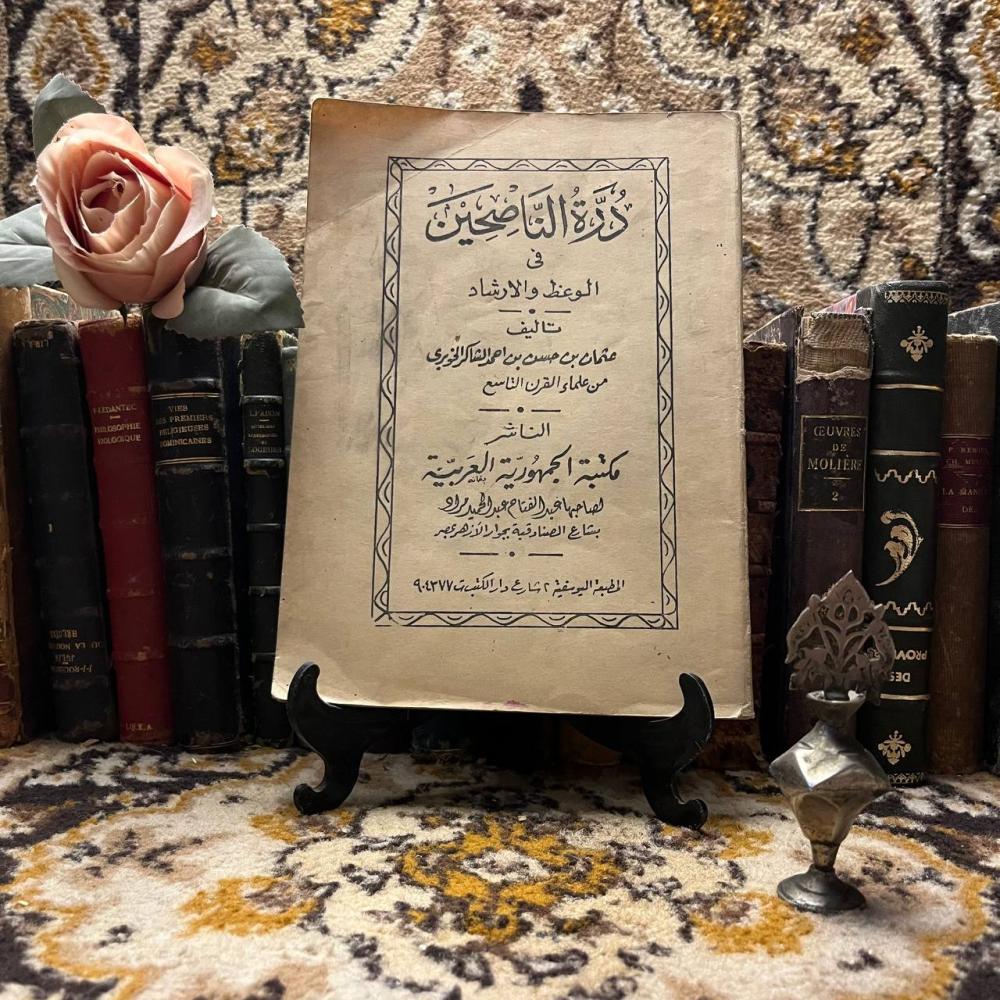 دُرَّةُ النَّاصِحِيْنَ
فى
الوعظ والارشاد
تأليف
عثمان بن حسن بن احمد الشاكر الخوبرى
من علماء القرن التاسع
الناشر
مكتبة الجمهوريّة العربيّة
لصاحبها عبد الفتاح عبد الحميد مراد
بشارع الصنادقية بجوار الأزهر بمصر
المطبعة اليوسفية ٢ شارع دار الكتب ت ٩٠٤٣٧٧
F. LEDANTEC
PHILOSOPHIE
BIOLOGIQUE
U.F.K.A
VIES
DES PREMIERES
RELIGIEUSES
DOMINICAINES
ŒUVRES
DE
MOLIÈRE
2
LA MAIN
DE
DES
PROV